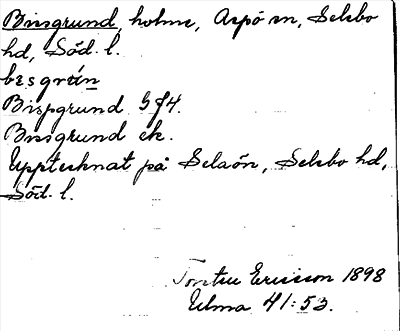 Bisgrund, holme, Aspö sn, Selebo
hd, Söd. l.
Bispgrund
Bisgrund ek.
Upptecknat på Selaön, Selebo hd,
Söd. l.
Torsten Ericsson 1898
Ulma 41:53.